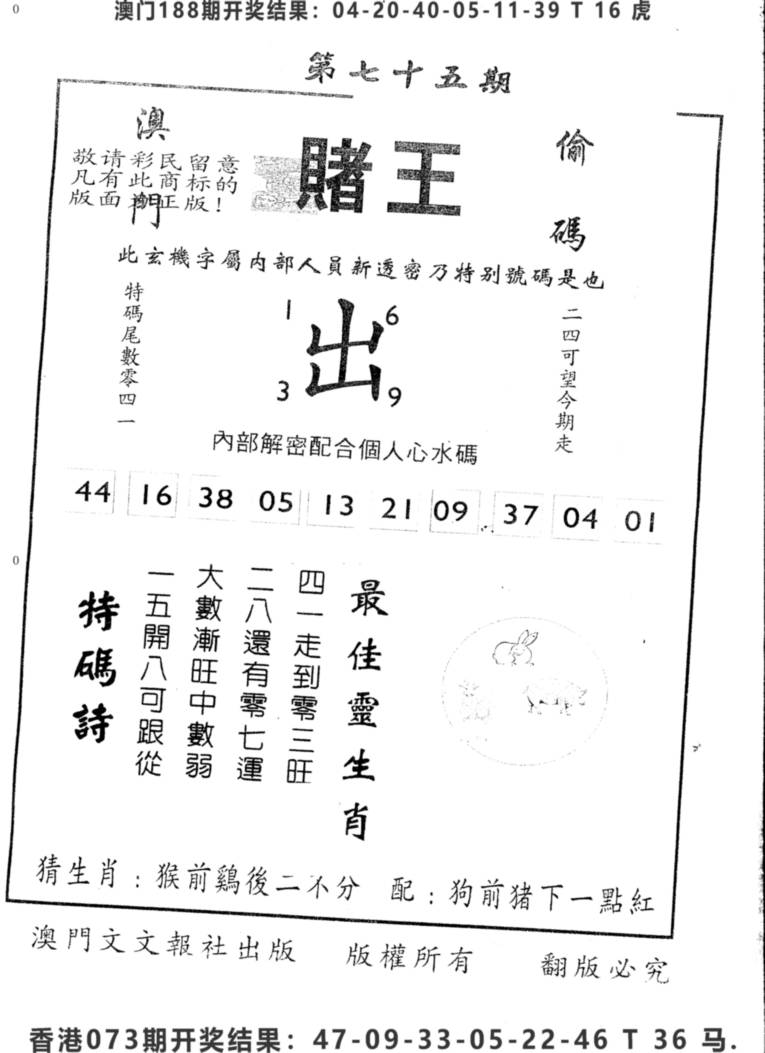 澳门188期开奖结果：04-20-40-05-11-39 T 16 虎
第七十五期
澳門
賭王
偷碼
敬请彩民留意
凡有此商标的
版面 正版！
此玄機字屬内部人員新透密乃特别號碼是也
特碼尾數零四一
1 6
出
3 9
二四可望今期走
内部解密配合個人心水碼
44 16 38 05 13 21 09 37 04 01
最佳靈生肖
四一走到零三旺
二八還有零七運
大數漸旺中數弱
一五開八可跟從
特碼詩
猜生肖：猴前鷄後二不分 配：狗前猪下一點紅
澳門文文報社出版 版權所有 翻版必究
香港073期开奖结果：47-09-33-05-22-46 T 36 马.
0
0